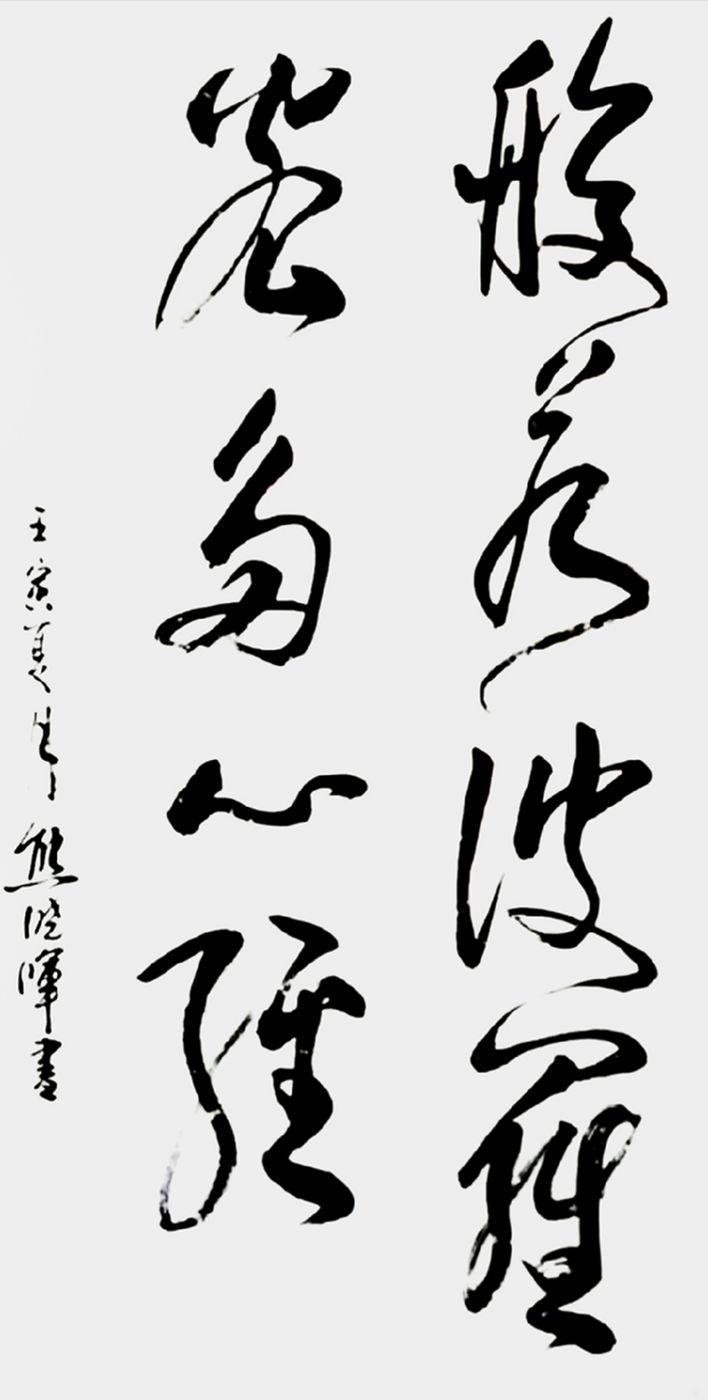 般若波羅
蜜多心經
壬寅夏年熊晓暉書